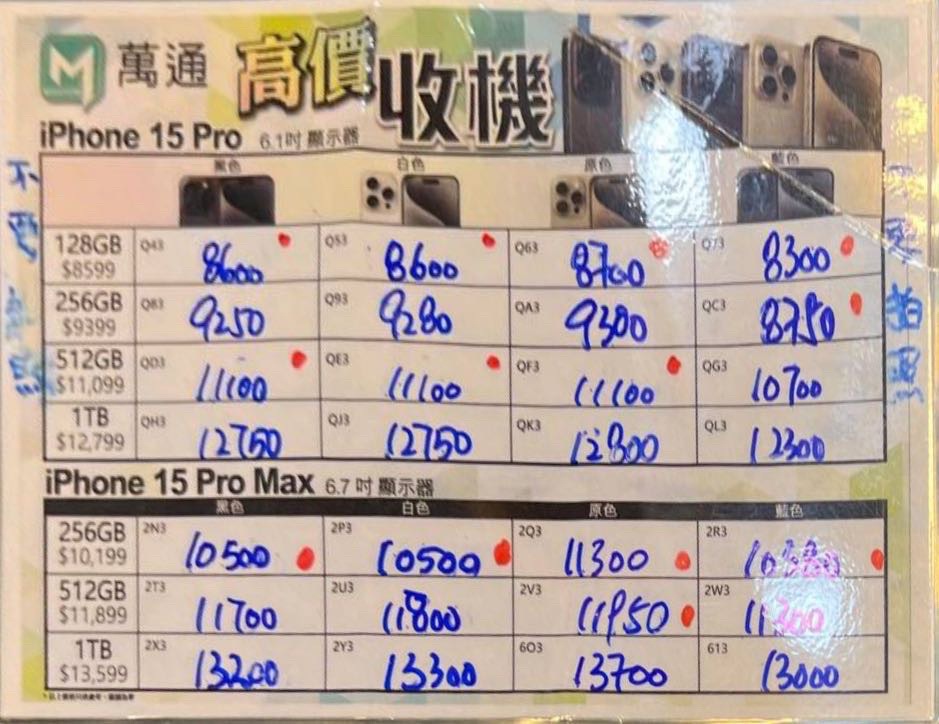 M 萬通 高價收機
iPhone 15 Pro 6.1吋 顯示器
黑色 白色 原色 藍色
128GB Q43 8600 Q53 8600 Q63 8700 Q73 8300
$8599
256GB Q83 9250 Q93 9280 QA3 9300 QC3 8750
$9399
512GB QD3 11100 QE3 11100 QF3 11100 QG3 10700
$11,099
1TB QH3 12750 QJ3 12750 QK3 12800 QL3 12300
$12,799
iPhone 15 Pro Max 6.7吋 顯示器
黑色 白色 原色 藍色
256GB 2N3 10500 2P3 10500 2Q3 11300 2R3
$10,199
512GB 2T3 11700 2U3 11800 2V3 11950 2W3 11300
$11,899
1TB 2X3 13200 2Y3 13300 6O3 13700 613 13000
$13,599